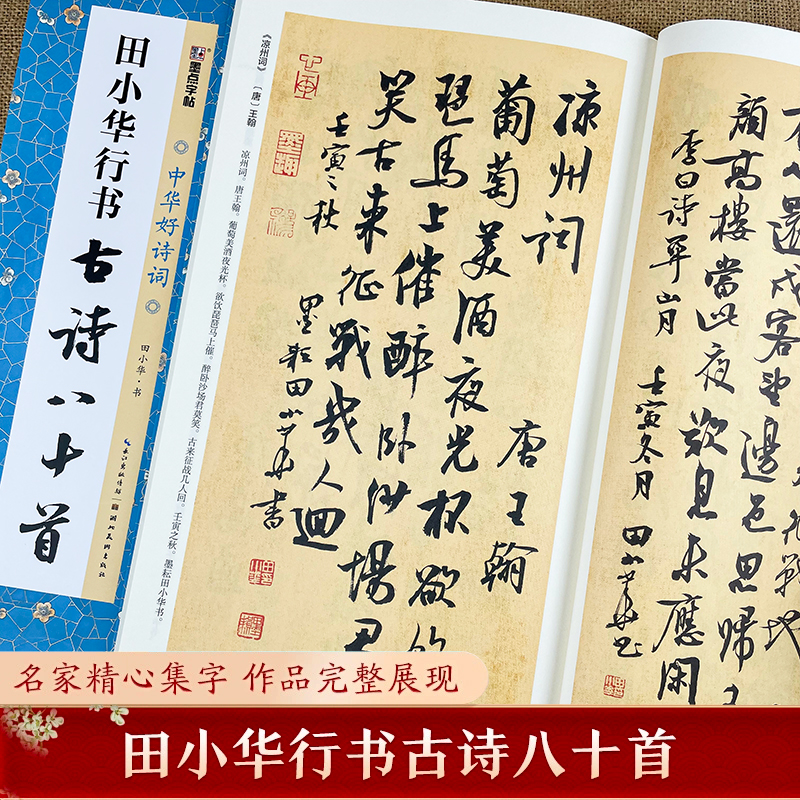 墨点字帖
田小华行书
中华好诗词
古诗八十首
田小华·书
长江出版传媒
湖北美术出版社
《凉州词》 〔唐〕王翰
凉州词。唐王翰。葡萄美酒夜光杯。欲饮琵琶马上催。醉卧沙场君莫笑。古来征战几人回。壬寅之秋。墨耘田小华书。
凉州词
唐王翰
葡萄美酒夜光杯欲饮
琵琶馬上催醉卧沙場君
笑古来征戰幾人迴
壬寅之秋
墨耘田小华書
邊邑思歸
顔高樓當此夜歎息未應閑
李白詩軍山月
壬寅冬月
田小华书
名家精心集字 作品完整展现
田小华行书古诗八十首